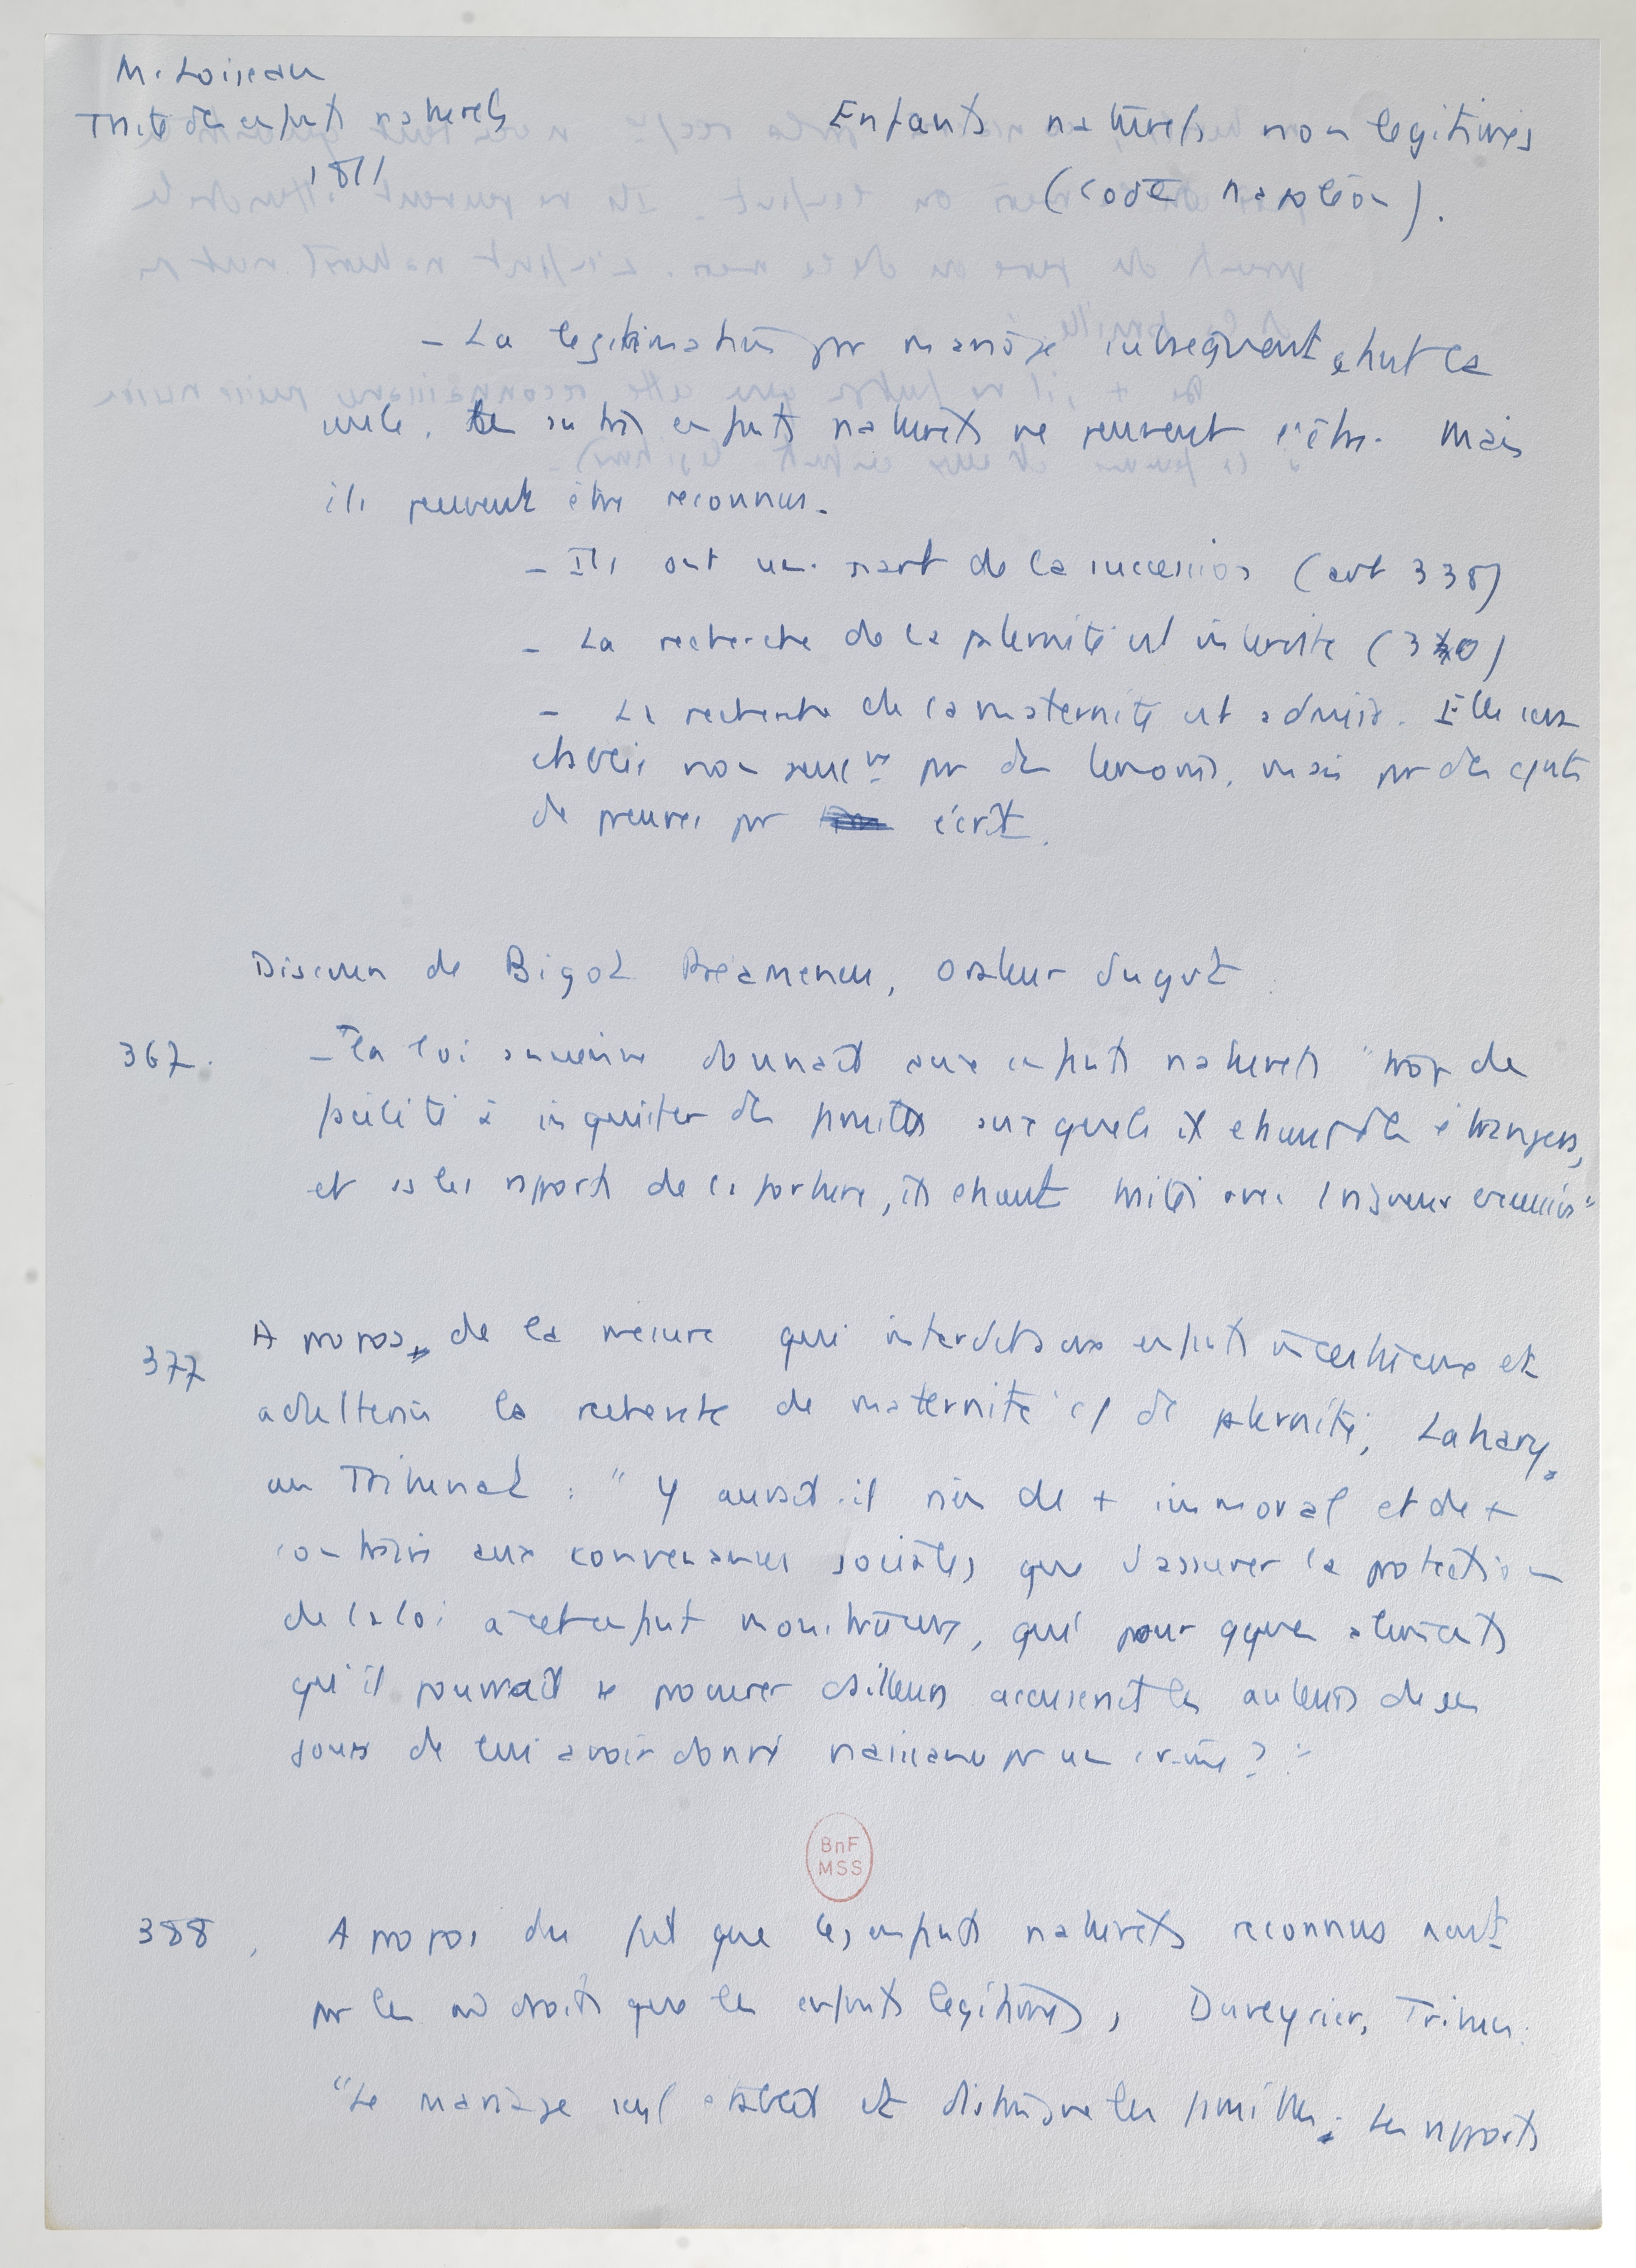 M. Loiseau
Traité des enfants naturels
1811
Enfants naturels non légitimés
(Code Napoléon).
- La légitimation par mariage subséquent étant la
seule, les autres enfants naturels ne peuvent l'être. Mais
ils peuvent être reconnus.
- Ils ont une part de la succession (art 338)
- La recherche de la paternité est interdite (340)
- La recherche de la maternité est admise. Elle sera
établie non seulᵗ par des témoins, mais par des
de preuves par écrit.
Discours de Bigot Préameneu, orateur du gvt
367. - La loi ancienne donnait aux enfants naturels "trop de
facilité à inquiéter des familles auxquels ils étaient étrangers,
et ss les rapports de la fortune, ils étaient traités avec 1 rigueur excessive"
377 A propos de la mesure qui interdit aux enfants incestueux et
adultérins la recherche de maternité et de paternité, Lahary,
au Tribunat : "Y aurait-il rien de + immoral et de +
contraire aux convenances sociales que d'assurer la protection
de la loi à cet enfant monstrueux, qui pour qques aliments
qu'il pourrait se procurer ailleurs accuserait les auteurs de ses
jours de lui avoir donné naissance par un crime ?"
388. A propos du fait que les enfants naturels reconnus n'ont
pas les m̂ droits que les enfants légitimes, Duveyrier, Tribun.
"Le mariage seul établit et distingue les familles ; les rapports
BnF
MSS